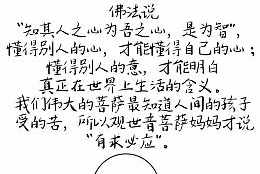 佛法说
"知其人之心为吾之心，是为智"，
懂得别人的心，才能懂得自己的心；
懂得别人的意，才能明白
真正在世界上生活的含义。
我们伟大的菩萨最知道人间的孩子
受的苦，所以观世音菩萨妈妈才说
"有求必应"。